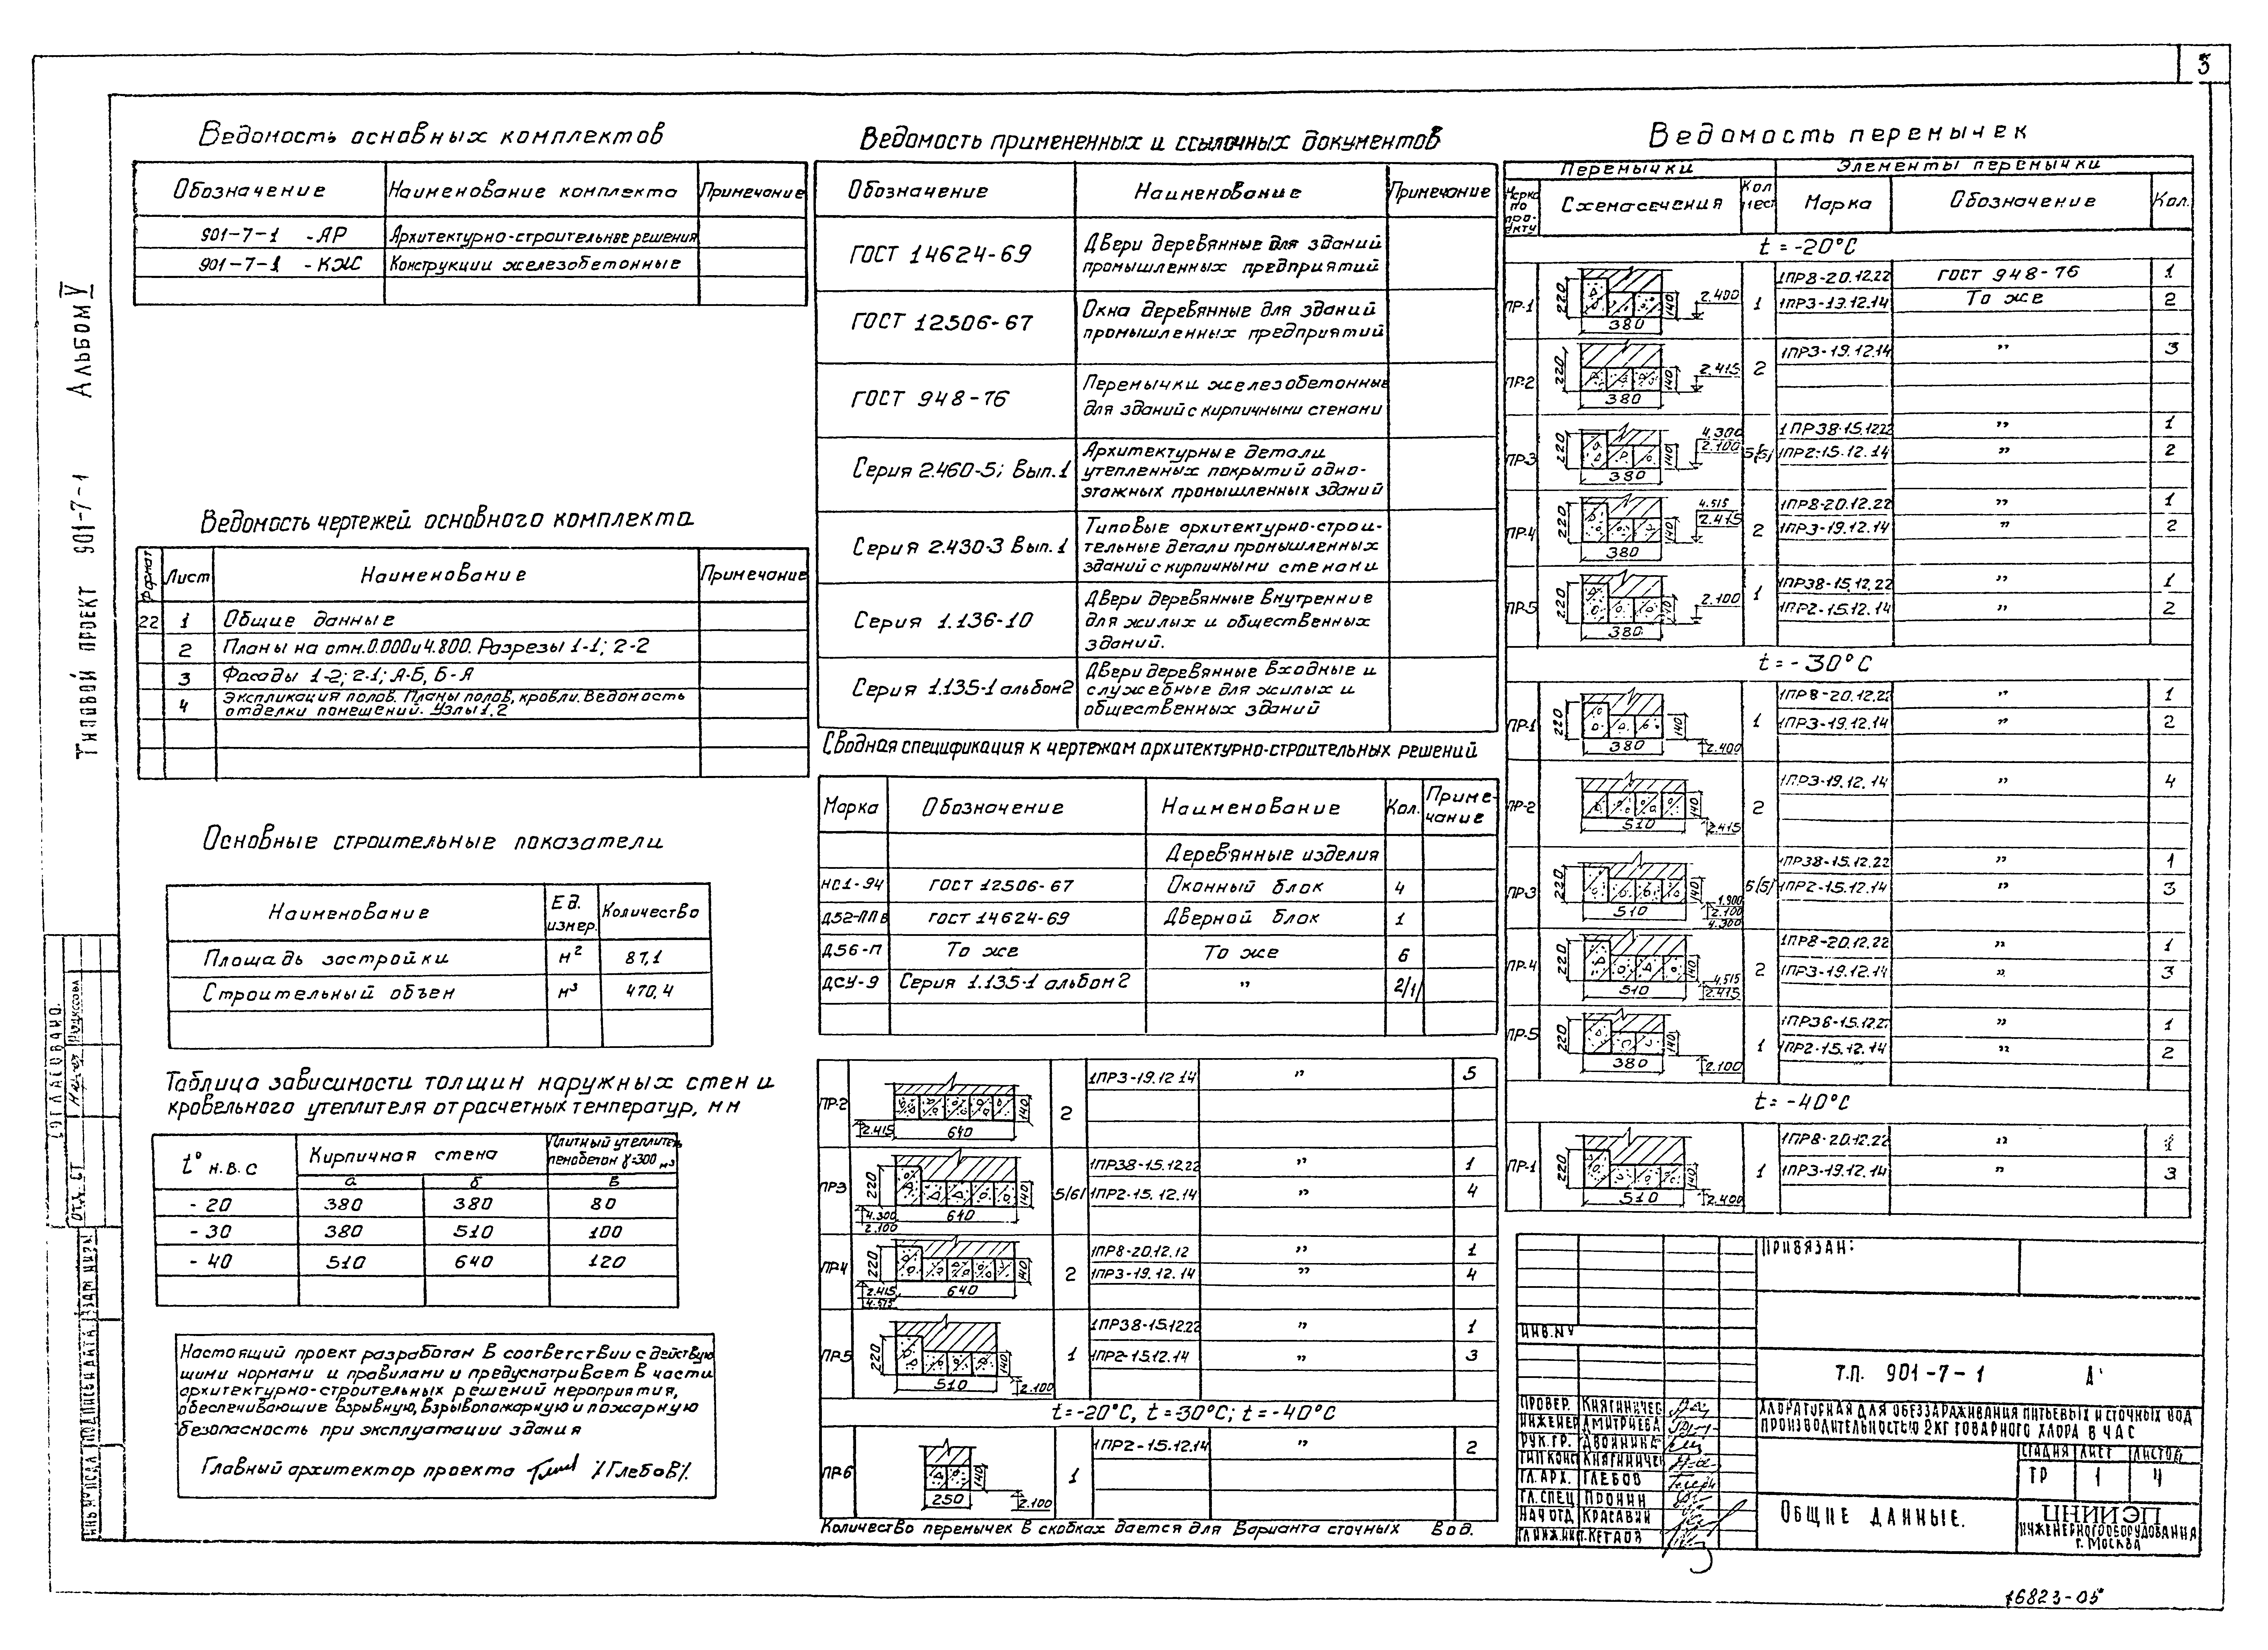 3
Альбом V
Типовой проект 901-7-1
Ведомость основных комплектов
Обозначение Наименование комплекта Примечание
901-7-1 -АР Архитектурно-строительные решения
901-7-1 -КЖ Конструкции железобетонные
Ведомость чертежей основного комплекта
Формат Лист Наименование Примечание
22 1 Общие данные
2 Планы на отм.0.000 и 4.800. Разрезы 1-1; 2-2
3 Фасады 1-2; 2-1; А-Б, Б-А
4 Экспликация полов. Планы полов, кровли. Ведомость
отделки помещений. Узлы 1,2
Основные строительные показатели
Наименование Ед. измер. Количество
Площадь застройки м² 87,1
Строительный объем м³ 470,4
Таблица зависимости толщин наружных стен и
кровельного утеплителя от расчетных температур, мм
t° н.в.с Кирпичная стена Плитный утеплитель
пенобетон γ=300 м³
а б в
-20 380 380 80
-30 380 510 100
-40 510 640 120
Настоящий проект разработан в соответствии с действую
щими нормами и правилами и предусматривает в части
архитектурно-строительных решений мероприятия,
обеспечивающие взрывную, взрывопожарную и пожарную
безопасность при эксплуатации здания
Главный архитектор проекта /Глебов/.
Ведомость примененных и ссылочных документов
Обозначение Наименование Примечание
ГОСТ 14624-69 Двери деревянные для зданий
промышленных предприятий
ГОСТ 12506-67 Окна деревянные для зданий
промышленных предприятий
ГОСТ 948-76 Перемычки железобетонные
для зданий с кирпичными стенами
Серия 2.460-5; Вып.1 Архитектурные детали
утепленных покрытий одно-
этажных промышленных зданий
Серия 2.430-3 Вып.1 Типовые архитектурно-строи-
тельные детали промышленных
зданий с кирпичными стенами
Серия 1.136-10 Двери деревянные внутренние
для жилых и общественных
зданий.
Серия 1.135-1 альбом 2 Двери деревянные входные и
служебные для жилых и
общественных зданий
Сводная спецификация к чертежам архитектурно-строительных решений
Марка Обозначение Наименование Кол. Приме-
чание
Деревянные изделия
НС1-94 ГОСТ 12506-67 Оконный блок 4
Д52-ППВ ГОСТ 14624-69 Дверной блок 1
Д56-П То же То же 6
ДСУ-9 Серия 1.135-1 альбом 2 " 2/1/
ПР-2 2.415 640 140 2 1ПР3-19.12.14 " 5
ПР3 220 4.300 2.100 640 140 5/6/ 1ПР38-15.12.22 " 1
1ПР2-15.12.14 " 4
ПР4 220 2.415 4.515 640 140 2 1ПР8-20.12.12 " 1
1ПР3-19.12.14 " 4
ПР5 220 510 140 2.100 1 1ПР38-15.12.22 " 1
1ПР2-15.12.14 " 3
t=-20°С, t=30°С; t=-40°С
ПР6 250 140 2.100 1 1ПР2-15.12.14 " 2
Количество перемычек в скобках дается для варианта сточных вод.
Ведомость перемычек
Перемычки Элементы перемычки
Марка по проекту Схема сечения Кол мест Марка Обозначение Кол.
t=-20°С
ПР-1 220 380 140 2.400 1 1ПР8-20.12.22 ГОСТ 948-76 1
1ПР3-19.12.14 То же 2
ПР-2 220 380 140 2.415 2 1ПР3-19.12.14 " 3
ПР-3 220 380 140 4.300 2.100 5/5/ 1ПР38-15.12.22 " 1
1ПР2-15.12.14 " 2
ПР-4 220 380 140 4.515 2.415 2 1ПР8-20.12.22 " 1
1ПР3-19.12.14 " 2
ПР-5 220 380 140 2.100 1 1ПР38-15.12.22 " 1
1ПР2-15.12.14 " 2
t=-30°С
ПР-1 220 380 140 2.400 1 1ПР8-20.12.22 " 1
1ПР3-19.12.14 " 2
ПР-2 510 140 2.415 2 1ПР3-19.12.14 " 4
ПР-3 220 510 140 1.900 2.100 4.300 5/5/ 1ПР38-15.12.22 " 1
1ПР2-15.12.14 " 3
ПР-4 220 510 140 4.515 2.415 2 1ПР8-20.12.22 " 1
1ПР3-19.12.14 " 3
ПР-5 220 380 140 2.100 1 1ПР38-15.12.22 " 1
1ПР2-15.12.14 " 2
t=-40°С
ПР-1 220 510 140 2.400 1 1ПР8-20.12.22 " 1
1ПР3-19.12.14 " 3
Привязан:
Инв.№
Т.П. 901-7-1 А
Хлораторная для обеззараживания питьевых и сточных вод
производительностью 2кг товарного хлора в час
Провер. Княгиничес
Инженер Дмитриева
Рук.гр. Двойнина
Гл.арх. Глебов
Гл.спец Пронин
Нач отд Красавин
Гл.инж.ин Кетаов
Стадия Лист Листов
ТР 1 4
Общие данные.
ЦНИИЭП
инженерного оборудования
г. Москва
Согласовано.
Отд. СТ
Инв.№подл Подпись и дата Взам инв№
16823-05